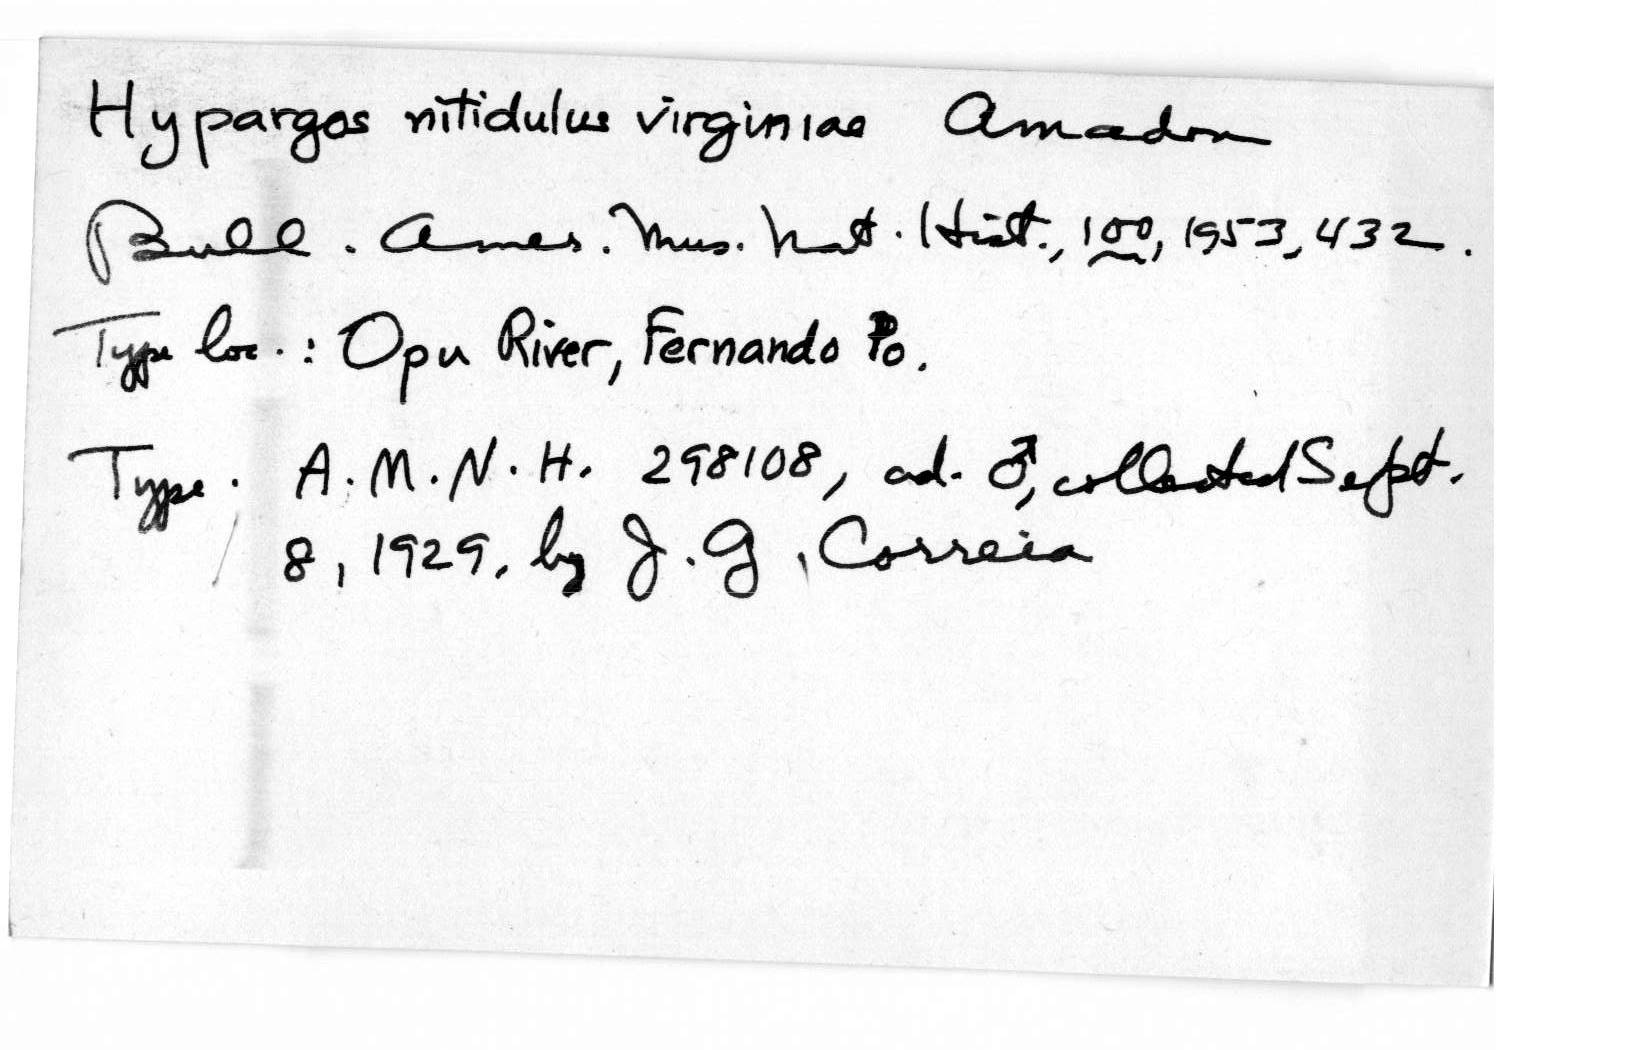 Hypargos nitidulus virginiae Amadon
Bull. Amer. Mus. Nat. Hist., 100, 1953, 432.
Type loc.: Opu River, Fernando Po.
Type. A.M.N.H. 298108, ad. ♂, collected Sept.
8, 1929, by J.G. Correia